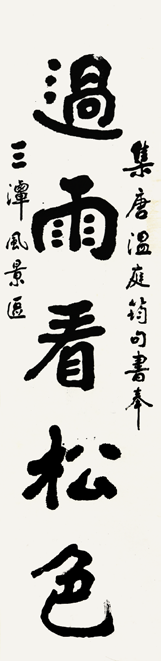 集唐溫庭筠句書奉
過雨看松色
三潭風景區